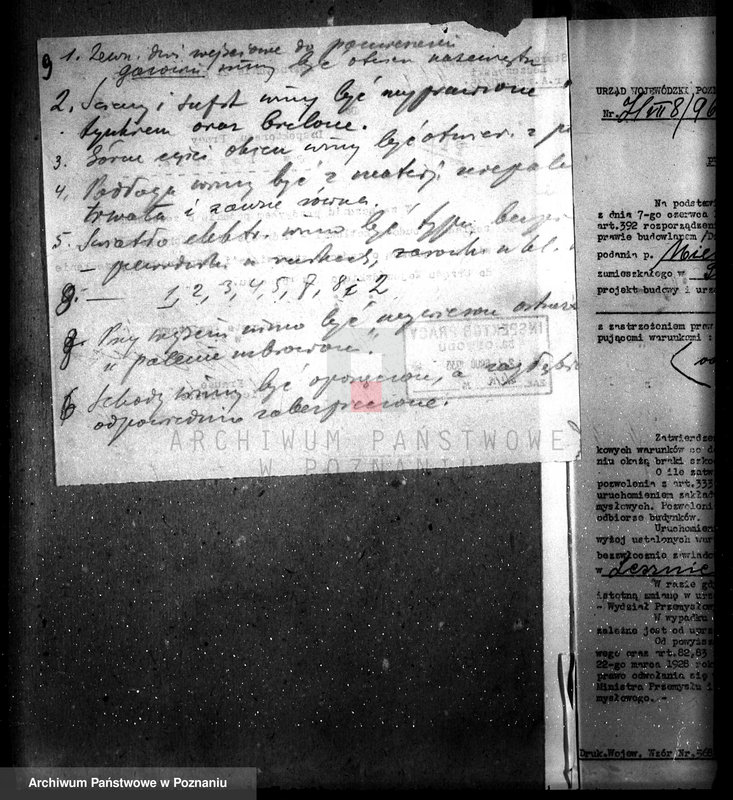 9
1. Zewn. drzwi wejściowe do pomieszczeń
garowni winny być obicie nazewnątrz
2. Ściany i sufit winny być wyprawione
tynkiem oraz bielone.
3. Górne części okien winny być otwier. z p
4. Podłoga winna być z materj. niepale
trwała i zawsze równa.
5. Światło elektr. winno być typu bezpie
8. — 1, 2, 3, 4, 5, 7, 8 i 2
winno być wywieszone ostrzeż
"palenie wzbronione".
6 Schody winny być oporęczone, a
odpowiednio zabezpieczone.
INSPEKTOR PRACY
ARCHIWUM PAŃSTWOWE
W POZNANIU
URZĄD WOJEWÓDZKI POZ
Nr.
Na podstawi
z dnia 7-go czerwca
art.392 rozporządzeni
prawie budowlanem /D
podania p.
zamieszkałego w
projekt budowy i urzą
z zastrzeżeniem praw
pującomi warunkami :
Zatwierdze
kowych warunków co do
niu okażą braki szko
O ile zatw
pozwolenia z art.333
uruchomieniem zakład
mysłowych. Pozwoleni
odbiorze budynków.
Uruchomien
wyżej ustalonych war
bezzwłocznie zawiado
w Lesznie
W razie gdy
istotną zmianę w urz
- Wydział Przemysłow
W wypadku
zależne jest od uprz
Od powyższ
wego oraz art.82,83
22-go marca 1928 rok
prawo odwołania się
Ministra Przemysłu i
mysłowego. -
Druk.Wojew. Wzór Nr.568
Archiwum Państwowe w Poznaniu